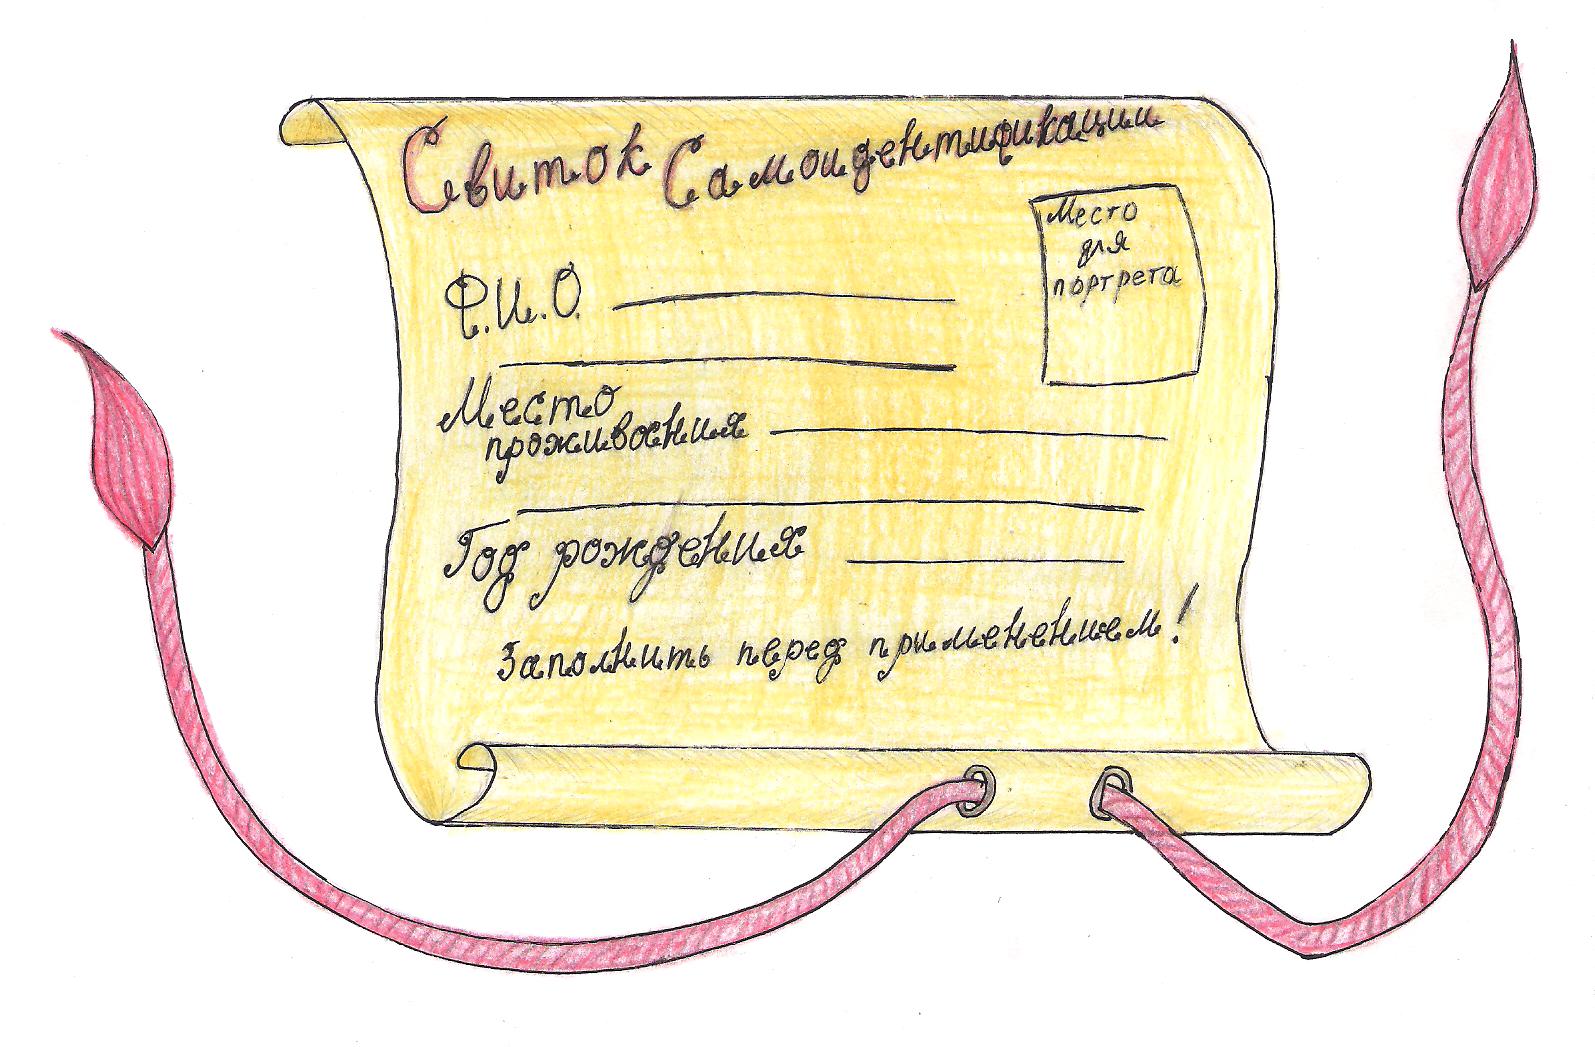 Свиток Самоидентификации
Место
для
портрета
Ф.И.О.
Место
проживания
Год рождения
Заполнить перед применением!